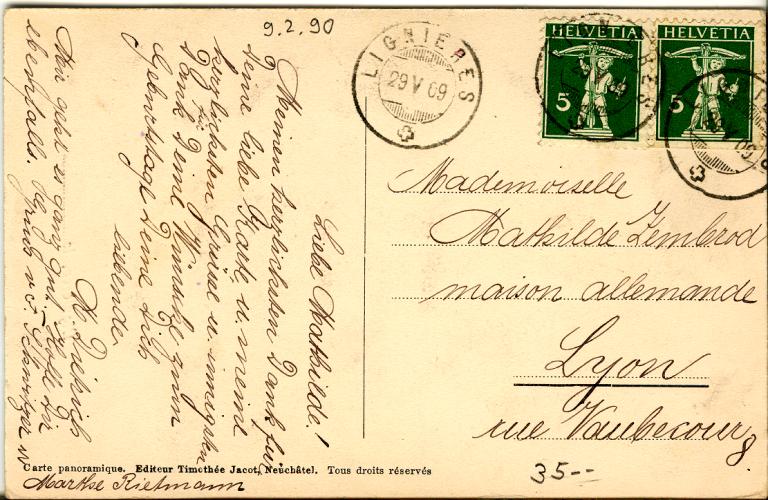 9.2.90
LIGNIÈRES
29 V 09
HELVETIA
5
HELVETIA
5
Mademoiselle
Mathilde Zembrod
maison allemande
Lyon
rue Vaubecour 8.
35--
Liebe Mathilde!
Meinen herzlichsten Dank für
Deine liebe Karte, u. meine
herzlichsten Grüsse u. innigsten
Dank für Deine Wünsche zum
Geburtstage Deine Dich
liebende
M. Dietrich
Mir geht es ganz gut, Hoffe Dir
ebenfalls.
Gruss v. d. Schwitzer in
Marthe Rietmann
Carte panoramique. Editeur Timothée Jacot, Neuchâtel. Tous droits réservés